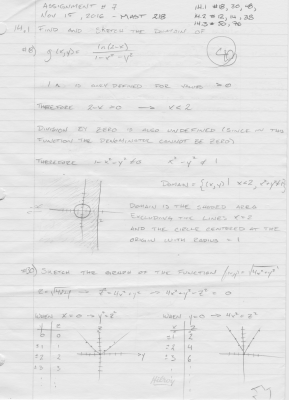 ASSIGNMENT # 7
NOV 15, 2016 - MAST 218
14.1 # 18, 30, 48,
14.2 # 12, 14, 38
14.3 # 50, 76
14.1 FIND AND SKETCH THE DOMAIN OF
#18) g(x,y) = ln(2-x) / 1-x²-y²
IS NOT DEFINED FOR VALUES ≤ 0
THEREFORE 2-x > 0 → x < 2
DIVISION BY ZERO IS ALSO UNDEFINED (SINCE IN THIS
FUNCTION THE DENOMINATOR CANNOT BE ZERO)
THEREFORE 1-x²-y² ≠ 0 x²+y² ≠ 1
DOMAIN = {(x,y) | x<2, x²+y²≠1}
DOMAIN IS THE SHADED AREA
EXCLUDING THE LINES x=2
AND THE CIRCLE CENTERED AT THE
ORIGIN WITH RADIUS = 1
#30) SKETCH THE GRAPH OF THE FUNCTION f(x,y) = √4x²+y²
z = √4x²+y² → z² = 4x²+y² → 4x²+y²-z² = 0
WHEN x=0 → y²=z²
WHEN y=0 → 4x²=z²
y z
0 0
±1 1
±2 2
±3 3
x z
0 0
±1 2
±2 4
±3 6